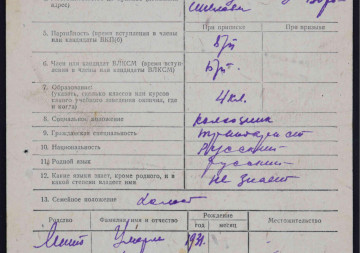 При приписке При призыве
5. Партийность (время вступления в члены или кандидаты ВКП(б) б/п
6. Член или кандидат ВЛКСМ (время вступления в члены или кандидаты ВЛКСМ) б/п
7. Образование
(указать, сколько классов или курсов какого учебного заведения окончил, где и когда) 4 кл.
8. Социальное положение колхозник
9. Гражданская специальность тракторист
10. Национальность Русский
11. Родной язык русский
12. Какие языки знает, кроме родного, и в какой степени владеет ими не знает
13. Семейное положение холост
Родство Фамилия, имя и отчество Рождение Местожительство
год месяц
умерла 1931